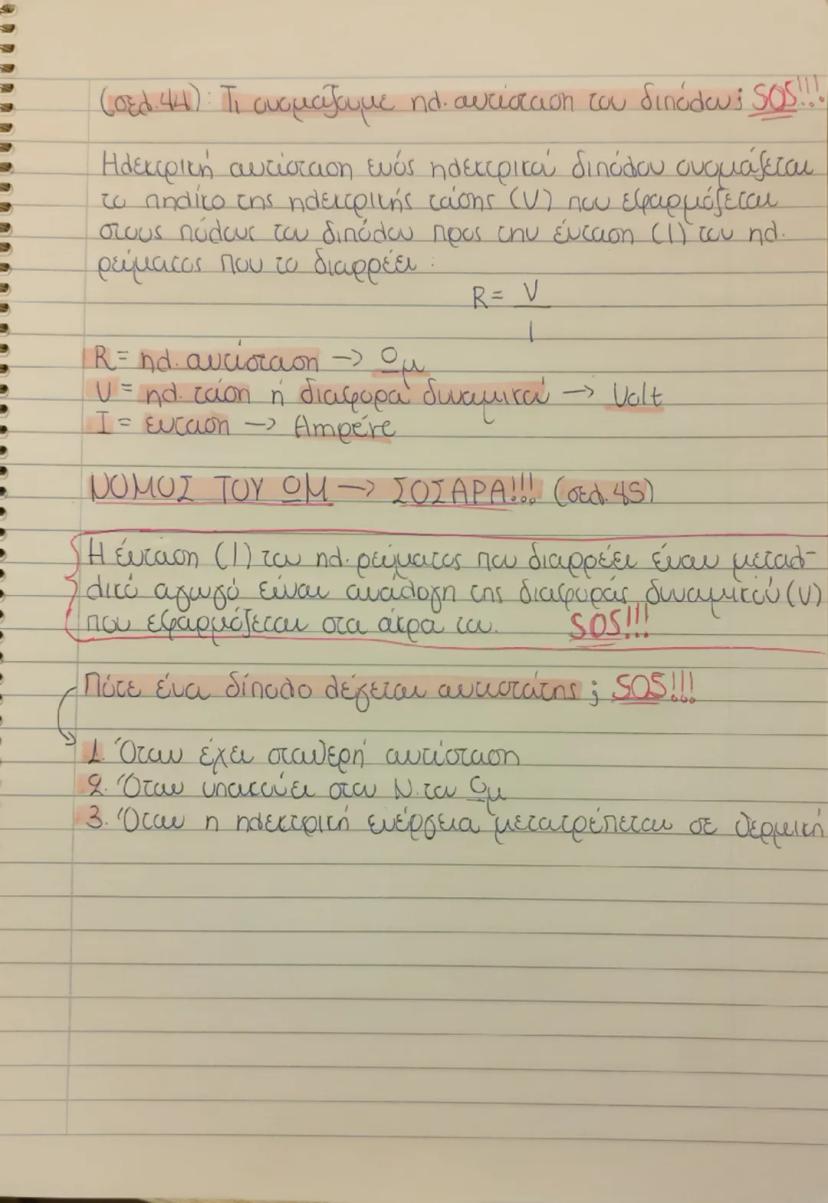 (σελ.44): Τι ονομάζουμε ηλ. αντίσταση του διπόλου; SOS!!!
Ηλεκτρική αντίσταση ενός ηλεκτρικού διπόλου ονομάζεται
το πηλίκο της ηλεκτρικής τάσης (V) που εφαρμόζεται
στους πόλους του διπόλου προς την ένταση (Ι) του ηλ.
ρεύματος που το διαρρέει:
R = V
Ι
R = ηλ. αντίσταση → Ωμ
V = ηλ. τάση ή διαφορά δυναμικού → Volt
I = ένταση → Ampére
ΝΟΜΟΣ ΤΟΥ ΩΜ → ΣΟΣΑΡΑ!!! (σελ.45)
Η ένταση (Ι) του ηλ. ρεύματος που διαρρέει έναν μεταλ-
λικό αγωγό είναι ανάλογη της διαφοράς δυναμικού (V)
που εφαρμόζεται στα άκρα του. SOS!!!
Πότε ένα δίπολο λέγεται αντιστάτης; SOS!!!
1. Όταν έχει σταθερή αντίσταση
2. Όταν υπακούει στον Ν. του Ωμ
3. Όταν η ηλεκτρική ενέργεια μετατρέπεται σε θερμική